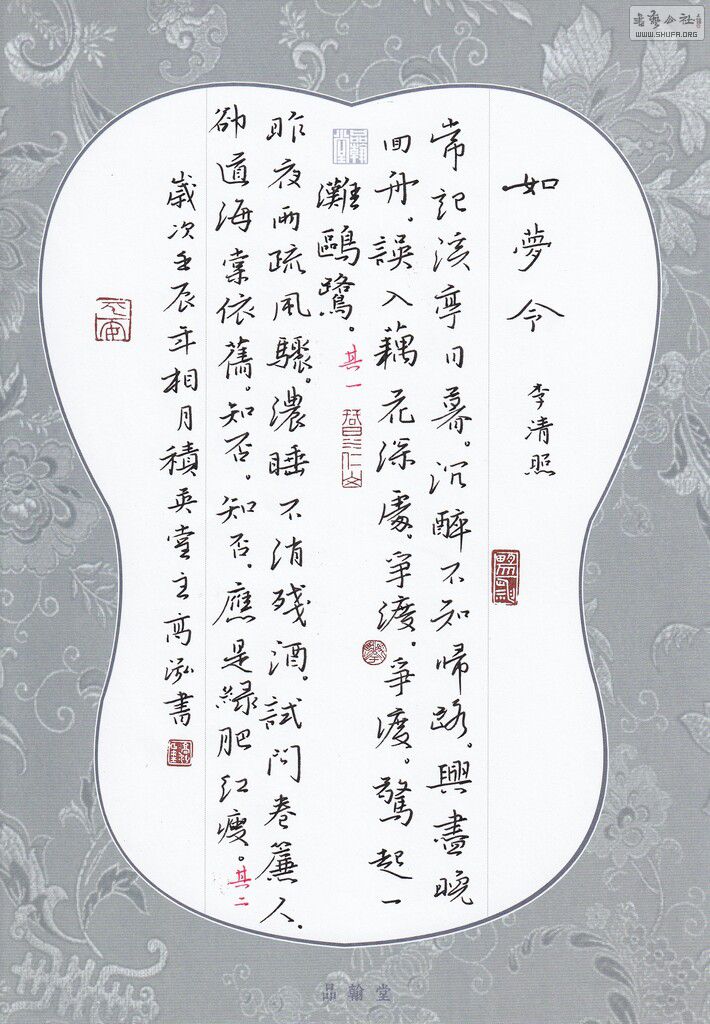 如夢令 李清照
常記溪亭日暮。沉醉不知歸路。興盡晚
回舟。誤入藕花深處。爭渡。爭渡。驚起一
灘鷗鷺。其一
昨夜雨疏風驟。濃睡不消殘酒。試問卷簾人。
卻道海棠依舊。知否。知否。應是綠肥紅瘦。其二
歲次壬辰年相月積英堂主高泓書
品翰堂
書藝公社
WWW.SHUFA.ORG